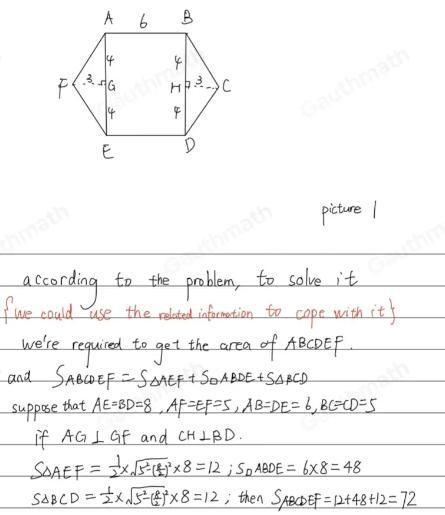 A 6 B
4 4
F 3 G H 3 C
4 4
E D
picture 1
according to the problem, to solve it
{we could use the related information to cope with it}
we're required to get the area of ABCDEF.
and SABCDEF = S△AEF + S□ABDE + S△BCD
suppose that AE=BD=8, AF=EF=5, AB=DE=6, BC=CD=5
if AG⊥GF and CH⊥BD.
S△AEF = 1/2 × √(5²-(8/2)²) × 8 = 12 ; S□ABDE = 6×8 = 48
S△BCD = 1/2 × √(5²-(8/2)²) × 8 = 12 ; then SABCDEF = 12+48+12 = 72
Gauthmath